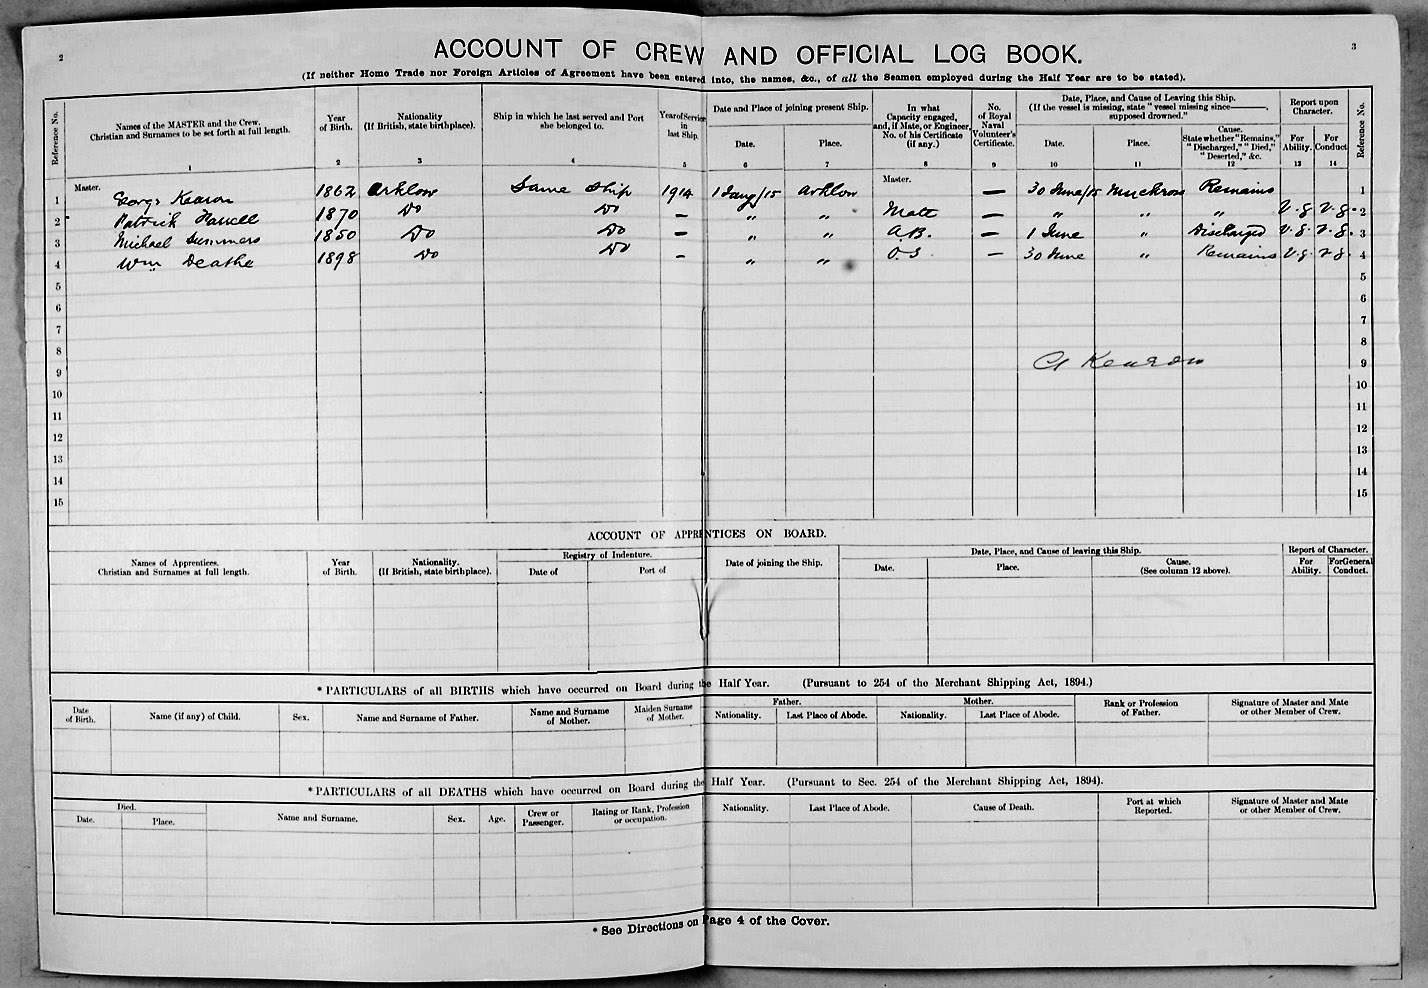 2
3
ACCOUNT OF CREW AND OFFICIAL LOG BOOK.
(If neither Home Trade nor Foreign Articles of Agreement have been entered into, the names, &c., of all the Seamen employed during the Half Year are to be stated).
Reference No.
Names of the MASTER and the Crew.
Christian and Surnames to be set forth at full length.
1
Year
of Birth.
2
Nationality
(If British, state birthplace).
3
Ship in which he last served and Port
she belonged to.
4
Year of Service
in
last Ship.
5
Date and Place of joining present Ship.
Date.
6
Place.
7
In what
Capacity engaged,
and, if Mate, or Engineer,
No. of his Certificate
(if any.)
8
No.
of Royal
Naval
Volunteer's
Certificate.
9
Date, Place, and Cause of Leaving this Ship.
(If the vessel is missing, state "vessel missing since———.
supposed drowned."
Date.
10
Place.
11
Cause.
State whether "Remains,"
"Discharged," "Died,"
"Deserted," &c.
12
Report upon
Character.
For
Ability.
13
For
Conduct
14
Reference No.
Master.
Master.
1 George Kearon 1862 Arklow Same Ship 1914 1 Jany/15 Arklow — 30 June/15 Muckross Remains 1
2 Patrick 1870 Do Do – " " Mate — " " " V.g V.g. 2
3 Michael Summers 1850 Do Do – " " A.B. — 1 June " Discharged V.g. V.g. 3
4 Wm Deathe 1898 Do Do – " " O.S — 30 June " Remains V.g. V.g. 4
5 5
6 6
7 7
8 8
9 G Kearon 9
10 10
11 11
12 12
13 13
14 14
15 15
ACCOUNT OF APPRENTICES ON BOARD.
Names of Apprentices.
Christian and Surnames at full length.
Year
of Birth.
Nationality.
(If British, state birthplace).
Registry of Indenture.
Date of
Port of
Date of joining the Ship.
Date, Place, and Cause of leaving this Ship.
Date.
Place.
Cause.
(See column 12 above).
Report of Character.
For
Ability.
For General
Conduct.
*PARTICULARS of all BIRTHS which have occurred on Board during the Half Year. (Pursuant to 254 of the Merchant Shipping Act, 1894.)
Date
of Birth.
Name (if any) of Child.
Sex.
Name and Surname of Father.
Name and Surname
of Mother.
Maiden Surname
of Mother.
Father.
Nationality.
Last Place of Abode.
Mother.
Nationality.
Last Place of Abode.
Rank or Profession
of Father.
Signature of Master and Mate
or other Member of Crew.
*PARTICULARS of all DEATHS which have occurred on Board during the Half Year. (Pursuant to Sec. 254 of the Merchant Shipping Act, 1894).
Died.
Date.
Place.
Name and Surname.
Sex.
Age.
Crew or
Passenger.
Rating or Rank, Profession
or occupation.
Nationality.
Last Place of Abode.
Cause of Death.
Port at which
Reported.
Signature of Master and Mate
or other Member of Crew.
* See Directions on Page 4 of the Cover.